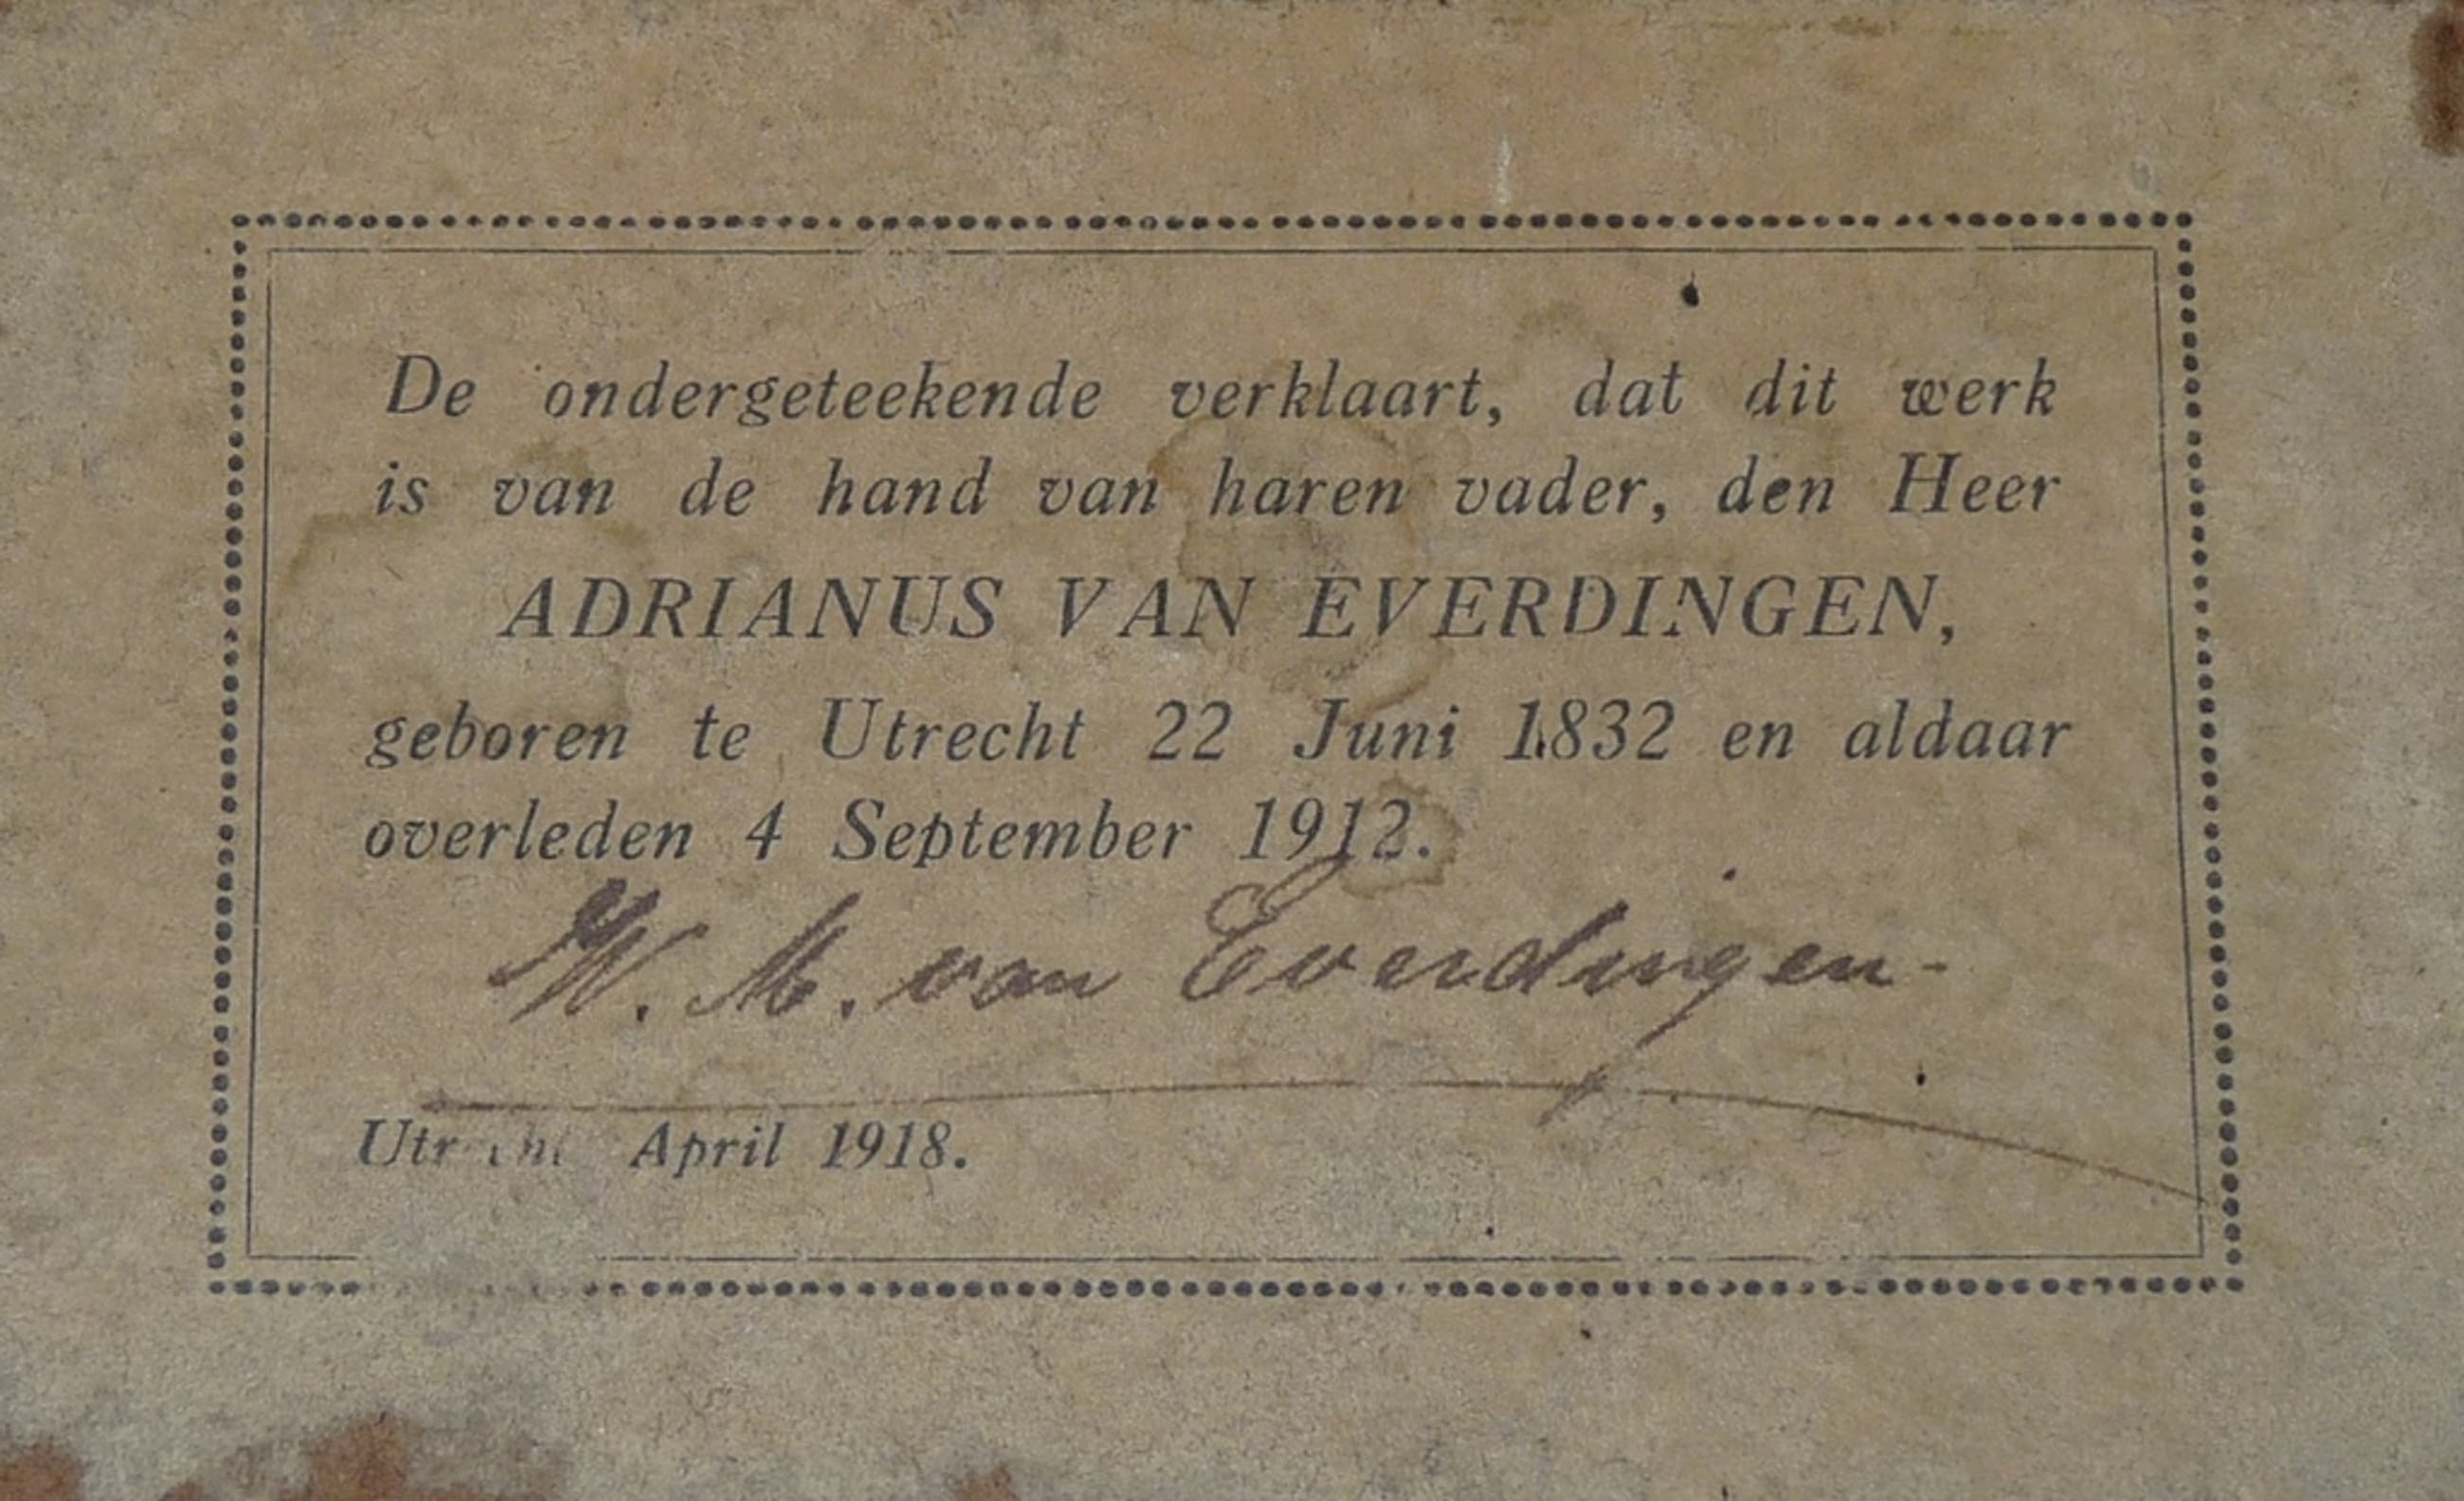 De ondergeteekende verklaart, dat dit werk
is van de hand van haren vader, den Heer
ADRIANUS VAN EVERDINGEN,
geboren te Utrecht 22 Juni 1832 en aldaar
overleden 4 September 1912.
W. M. van Everdingen-
Utrecht April 1918.